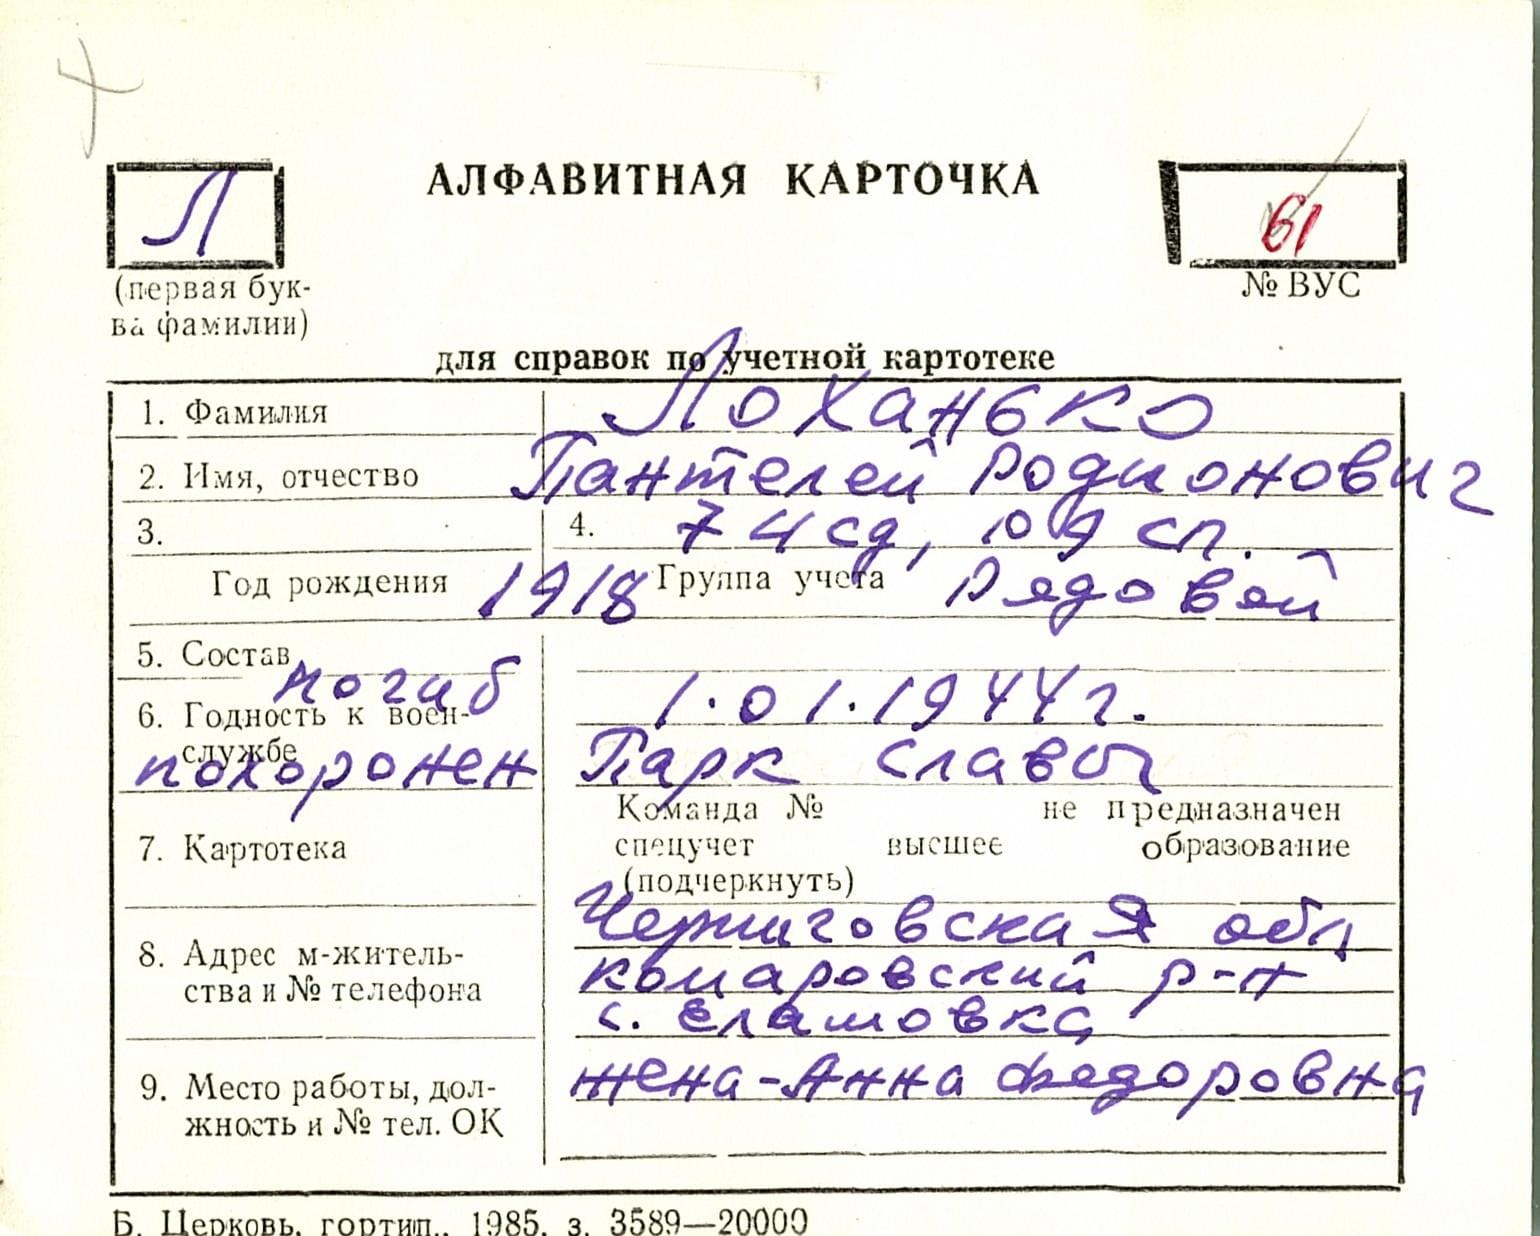 Л
АЛФАВИТНАЯ КАРТОЧКА
61
(первая бук-
ва фамилии)
№ ВУС
для справок по учетной картотеке
1. Фамилия Лоханько
2. Имя, отчество Пантелей Родионович
3. 4. 74 сд, 109 сп.
Год рождения 1918 Группа учета Рядовой
5. Состав
погиб 1.01.1944г.
6. Годность к воен-
службе
похоронен Парк Славы
Команда № не предназначен
7. Картотека спецучет высшее образование
(подчеркнуть)
Черниговская обл
8. Адрес м-житель- комаровский р-н
ства и № телефона с. Еламовка
9. Место работы, дол- жена-Анна Федоровна
жность и № тел. ОК
Б. Церковь, гортип., 1985, з. 3589—20000